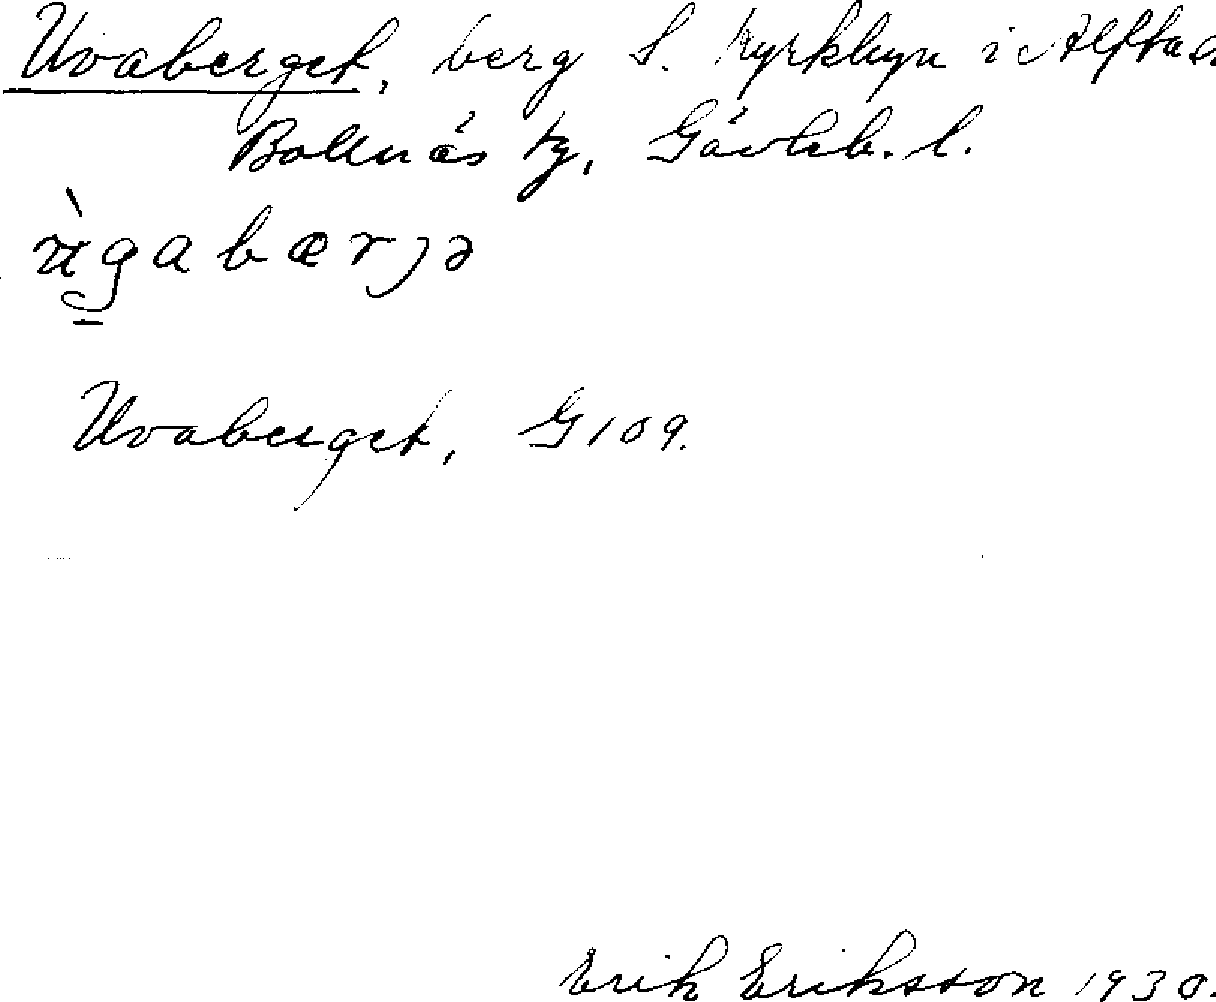 Uvaberget, berg S. Kyrkbyn i Alfta sn
Bollnäs tg, Gävleb. l.
ùgabærjə
Uvaberget, G 109.
Erik Eriksson 1930.